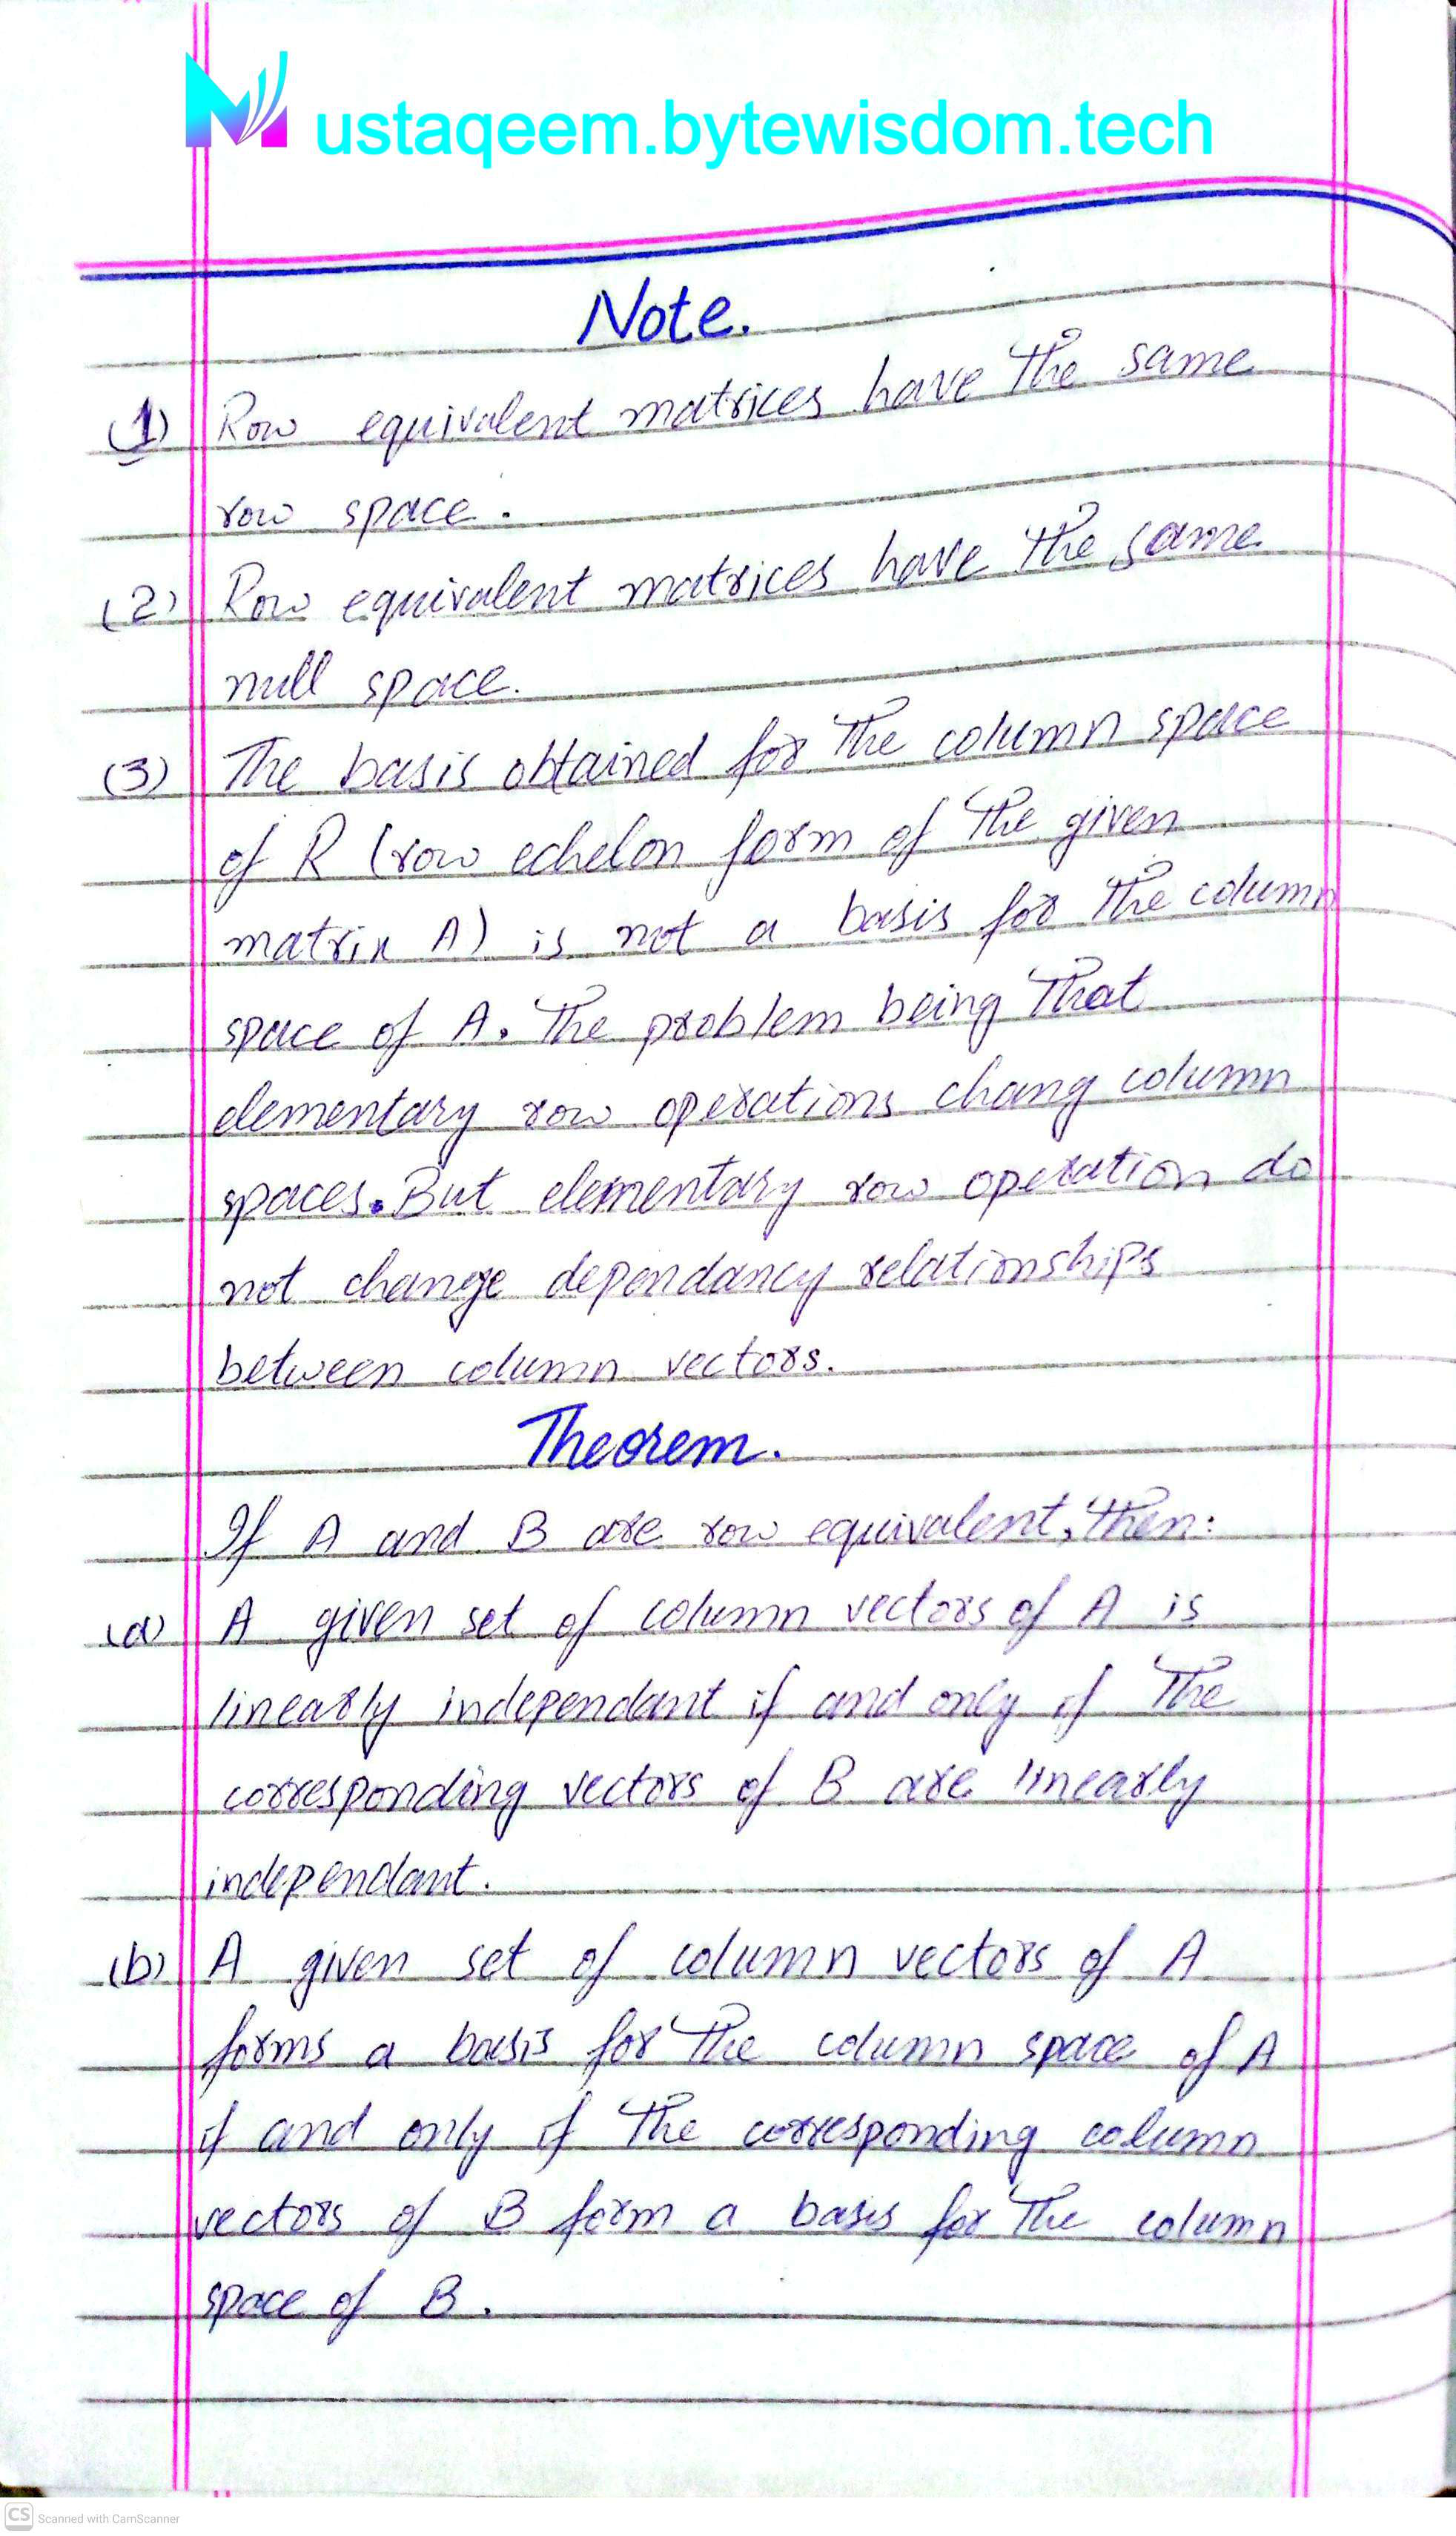 Mustaqeem.bytewisdom.tech
Note.
(1) Row equivalent matrices have the same
row space.
(2) Row equivalent matrices have the same
null space.
(3) The basis obtained for the column space
of R (row echelon form of the given
matrix A) is not a basis for the column
space of A. The problem being that
elementary row operations chang column
spaces. But elementary row operation do
not change dependancy relationships
between column vectors.
Theorem.
If A and B are row equivalent, then:
(a) A given set of column vectors of A is
linearly independant if and only if the
corresponding vectors of B are linearly
independant.
(b) A given set of column vectors of A
forms a basis for the column space of A
if and only if the corresponding column
vectors of B form a basis for the column
space of B.
CS Scanned with CamScanner